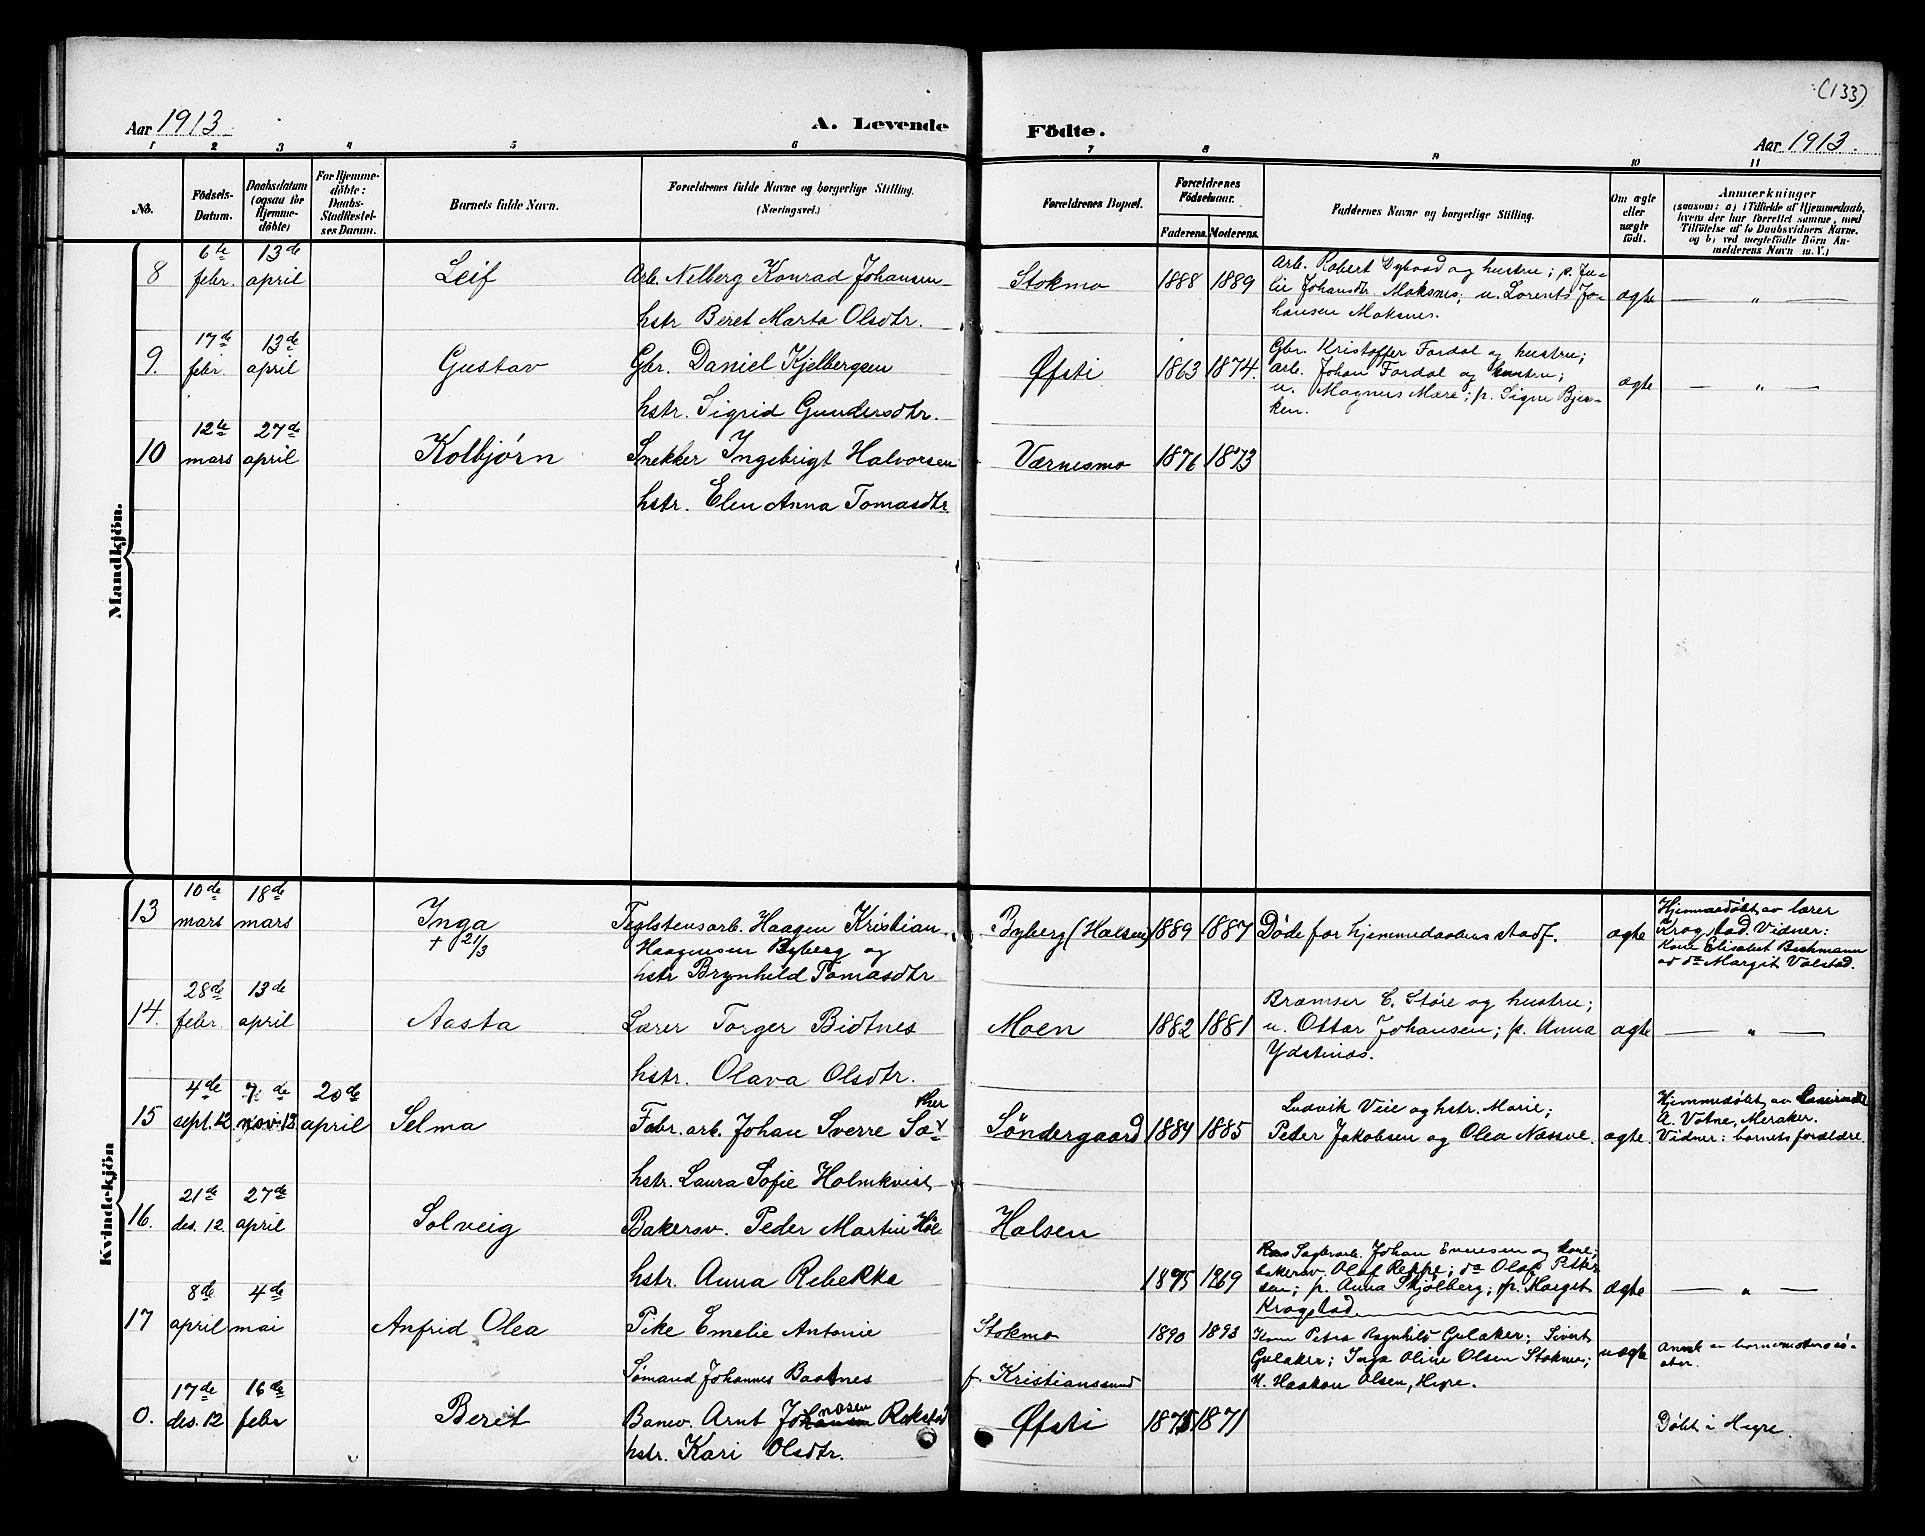 (133)
Aar 1913.
A. Levende Födte.
Aar 1913.
1 2 3 4 5 6 7 8 9 10 11
No.
Födsels-Datum.
Daabsdatum (ogsaa for Hjemme-döbte)
For Hjemme-döbte: Daabs-Stadfestel-ses Datum.
Barnets fulde Navn.
Forældrenes fulde Navne og borgerlige Stilling. (Næringsvei.)
Forældrenes Bopæl.
Forældrenes Födselsaar.
Faderens. Moderens.
Faddernes Navne og borgerlige Stilling.
Om ægte eller uægte födt.
Anmærkninger
(saasom: a) i Tilfælde af Hjemmedaab, hvem der har forrettet samme, med Tilföielse af to Daabsvidners Navne, og b) ved uægtefödte Börn Anmelderens Navn m. V.)
Mandkjön.
8 6te febr. 13de april Leif Arb. Nilberg Konrad Johansen
hstr Beret Marta Olsdtr.
Stokmo 1888 1889
Arb. Robert og hustru; p. Ju-
lie Johansdtr. Moksnes; u. Lorents Jo-
hansen Moksnes.
ægte — „ —
9. 17de febr. 13de april Gustav Gbr. Daniel Kjelbergsen
hstr. Sigrid Gundersdtr.
Øfsti 1863 1874.
Gbr. Kristoffer Fordal og hustru;
arb. Johan Fordal og hustru;
u. Magnus Mære; p. Signe Bjer-
ken.
ægte — „ —
10 12te mars 27de april Kolbjørn Snekker Ingebrigt Halvorsen
hstr. Elen Anna Tomasdtr.
Værnesmo 1876 1873
Kvindekjön
13 10de mars 18de mars Inga
† 21/3
Teglstensarb. Haagen Kristian
Haagensen Byberg og
hstr Brynhild Tomasdtr
Byberg (Halsen) 1889 1887 Døde før hjemmedaabens stadf. ægte
Hjemmedøbt av lærer
Krogstad. Vidner:
Kone Elisabet Bachmann
og do Margit Valstad.
14. 28de febr. 13de april Aasta Lærer Torger Bidtnes
hstr. Olava Olsdtr.
Moen 1882 1881
Bræmser E. Støre og hustru;
u. Ottar Johansen; p. Anna
Ydstinæs.
ægte — „ —
15 4de sept. 12 7de nov. 12 20de april Selma Fabr. arb. Johan Sverre Sæ-
ther
hstr. Laura Sofie Holmkvist
Søndergaard 1884 1885
Ludvik Veie og hstr. Marie;
Peder Jakobsen og Olea Næsve.
ægte.
Hjemmedøbt av
A. Votne, Meraker.
Vidner: barnets forældre.
16. 21de des. 12 27de april Solveig Bakersv. Peder Martin Høe
hstr. Anna Rebekka
Halsen 1875 1869
Sagbrarb. Johan Evensen og kone;
bakersv. Olaf Reppe; do Olaf Petter-
sen; p. Anna Skjølberg; p. Margit
Krogstad
ægte — „ —
17 8de april 4de mai Anfrid Olea Pike Emelie Antonie
Sømand Johannes Baatnes
Stokmo
f. Kristianssund
1890 1893
Kone Petra Ragnhild Gulaker; Sivert
Gulaker; Inga Oline Olsen Stokmo;
U. Haakon Olsen, Hegre.
uægte
Anm. av barnemoterens sø-
ster.
0. 17de des. 12 16de febr Berit Banev. Arnt Johansen
nasen
Rokstad
hstr. Kari Olsdtr.
Øfsti 1875 1871 Døbt i Hegre.